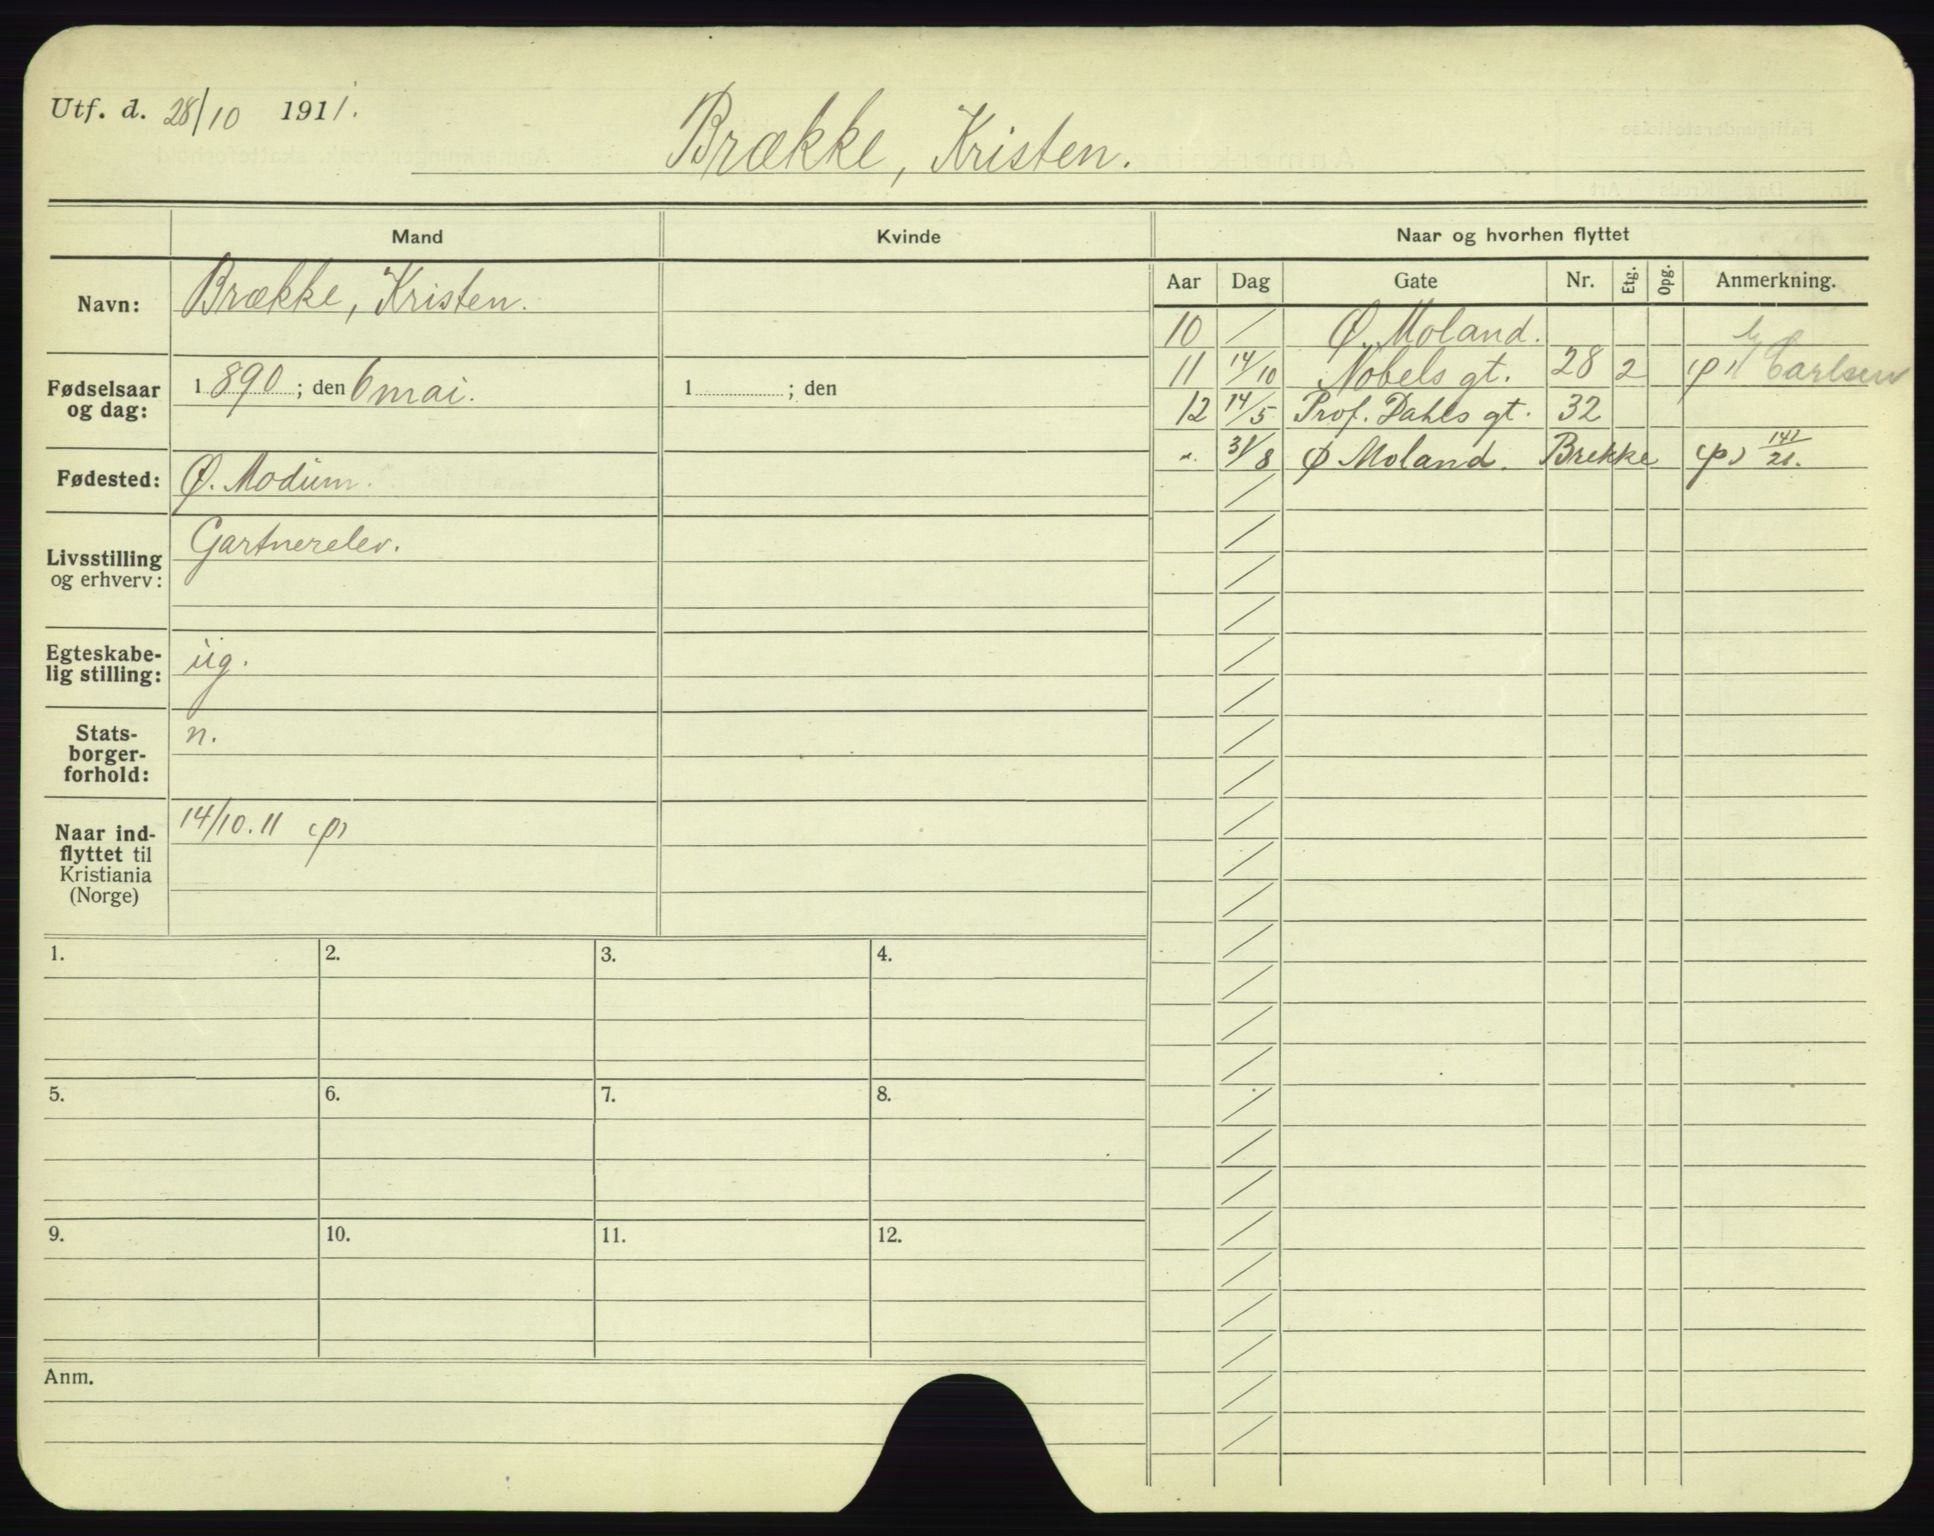 Utf. d. 28/10 1911.
Brække, Kristen.
Mand Kvinde Naar og hvorhen flyttet
Aar Dag Gate Nr. Etg. Opg. Anmerkning.
Navn: Brække, Kristen.
Fødselsaar og dag: 1890; den 6 mai. 1 ; den
Fødested: Ø. Modum.
Livsstilling og erhverv: Gartnerelev.
Egteskabe-
lig stilling: ug.
Stats-
borger-
forhold: n.
Naar ind-
flyttet til
Kristiania
(Norge) 14/10.11 (p)
10 / Ø. Moland.
11 14/10 Nobels gt. 28 2 (p) Carlsen
12 14/5 Prof. Dahls gt. 32
". 31/8 Ø Moland. Brekke (p) 141/21.
1. 2. 3. 4.
5. 6. 7. 8.
9. 10. 11. 12.
Anm.